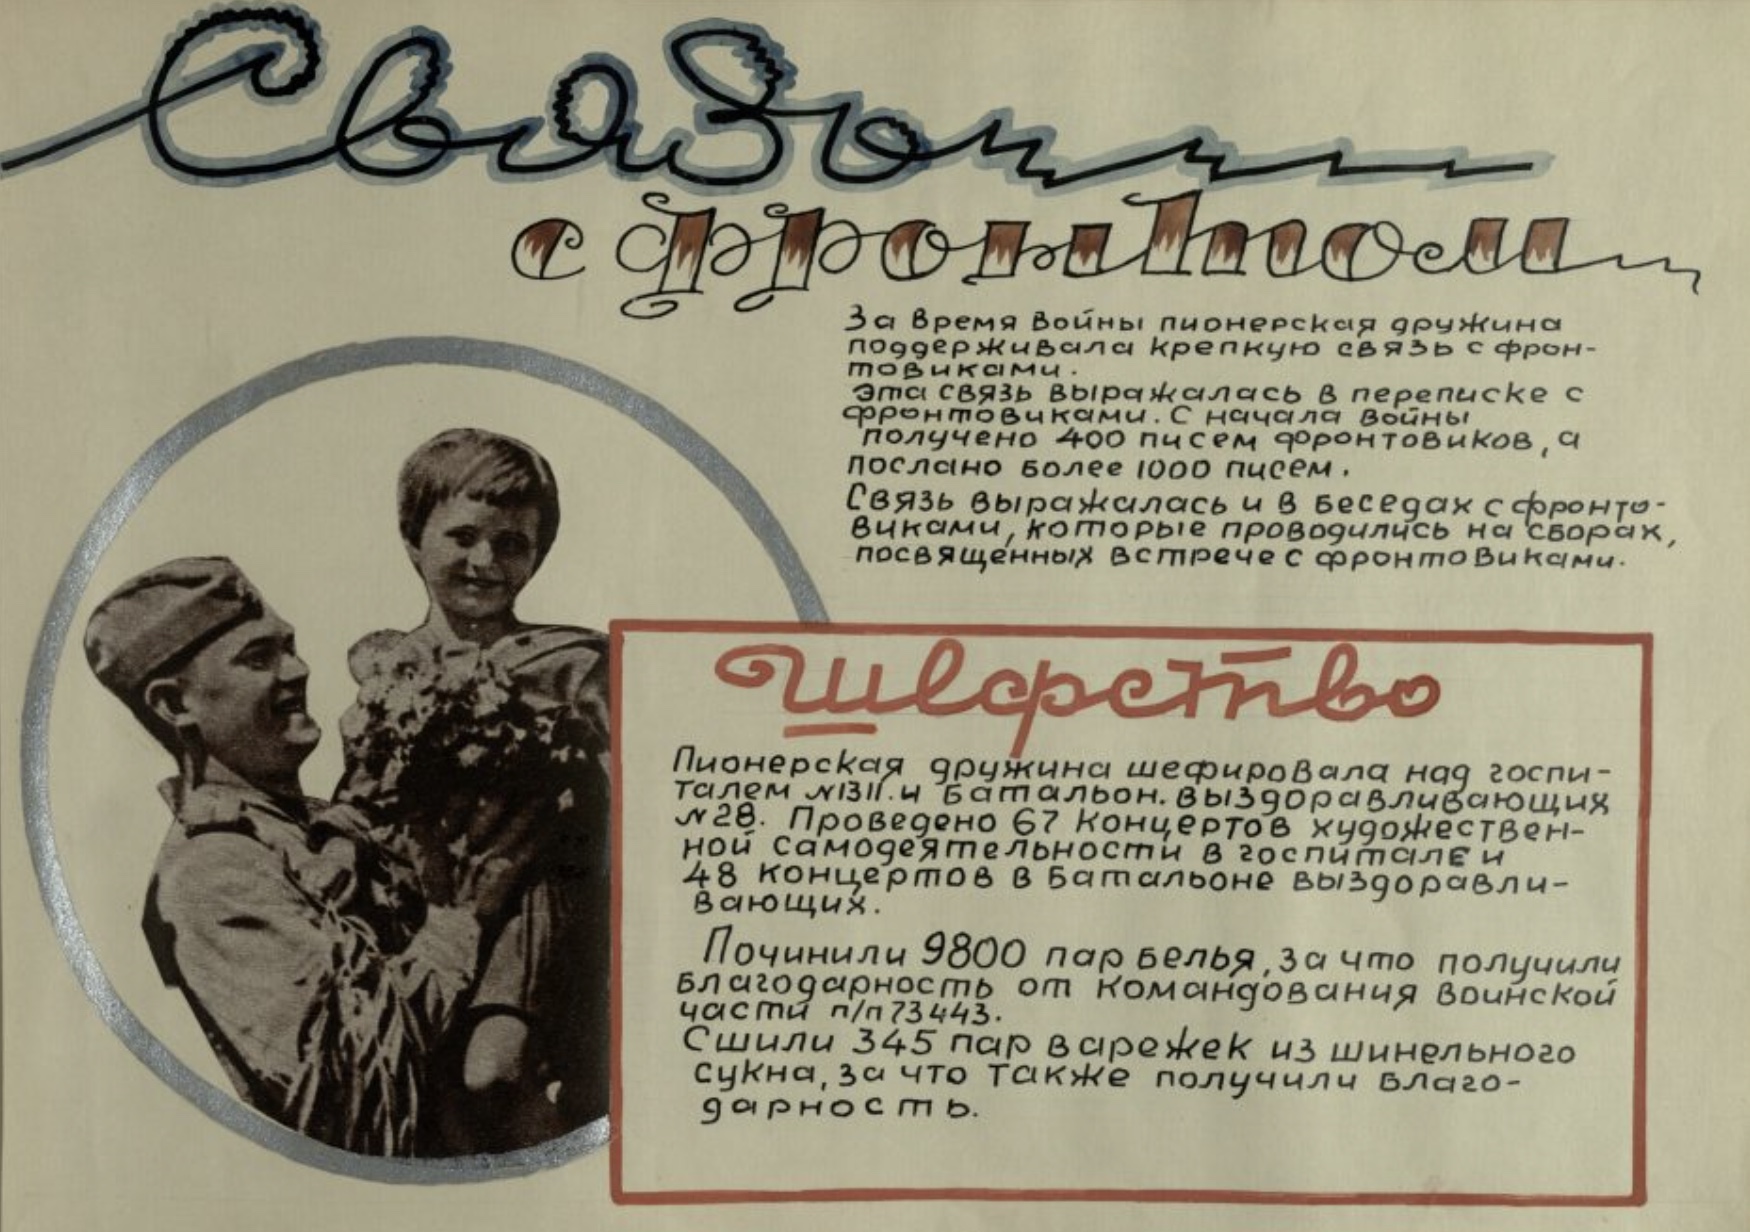 Связь
с фронтом
За время войны пионерская дружина
поддерживала крепкую связь с фрон-
товиками.
Эта связь выражалась в переписке с
фронтовиками. С начала войны
получено 400 писем фронтовиков, а
послано более 1000 писем.
Связь выражалась и в беседах с фронто-
виками, которые проводились на сборах,
посвященных встрече с фронтовиками.
Шефство
Пионерская дружина шефировала над госпи-
талем №1311. и батальон. выздоравливающих
№28. Проведено 67 концертов художествен-
ной самодеятельности в госпитале и
48 концертов в батальоне выздоравли-
вающих.
Починили 9800 пар белья, за что получили
благодарность от командования воинской
части п/п 73443.
Сшили 345 пар варежек из шинельного
сукна, за что также получили благо-
дарность.